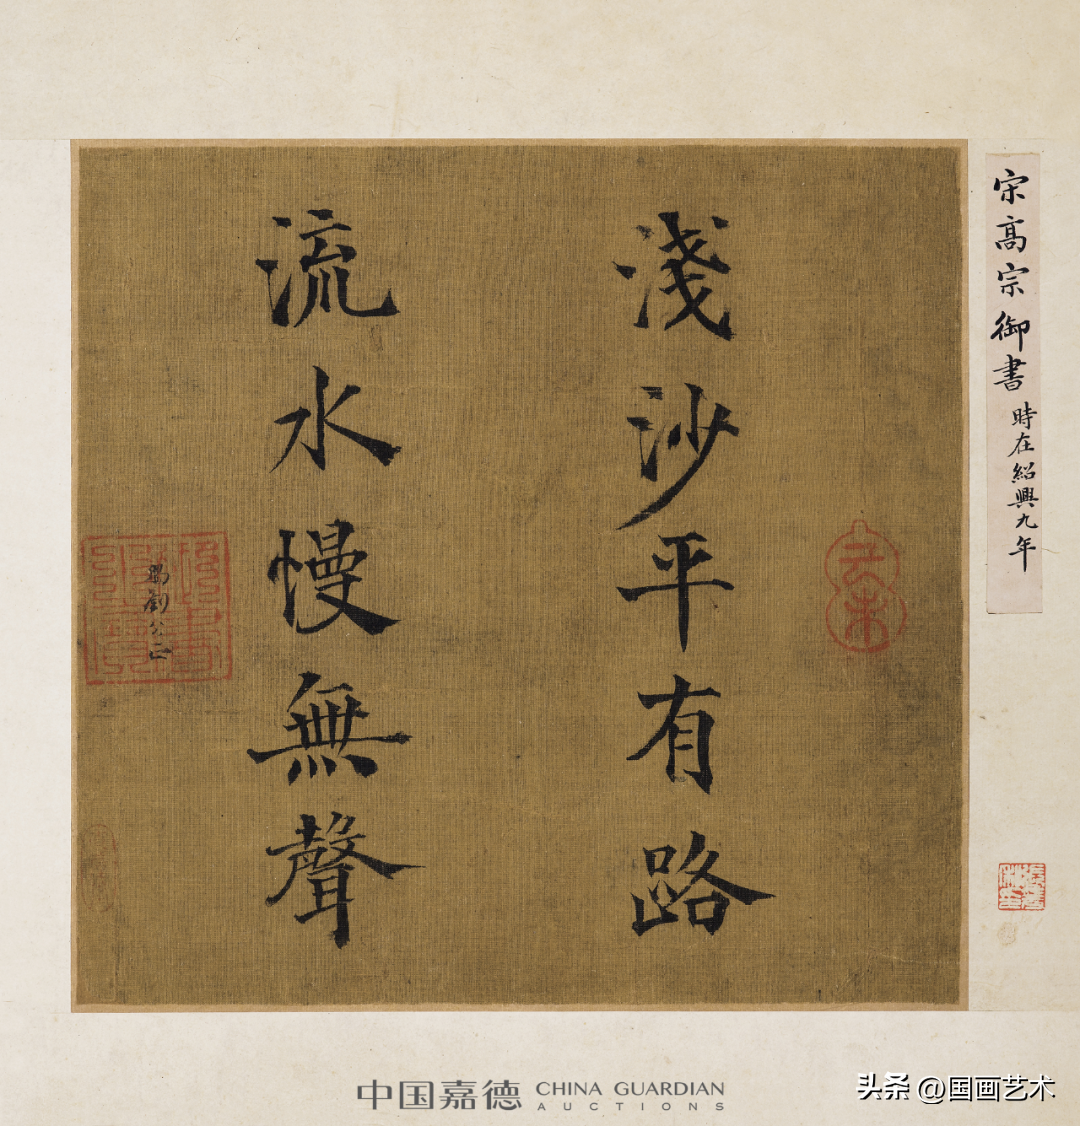 宋高宗御書 時在紹興九年
淺沙平有路
流水慢無聲
中国嘉德 CHINA GUARDIAN
AUCTIONS
头条 @国画艺术